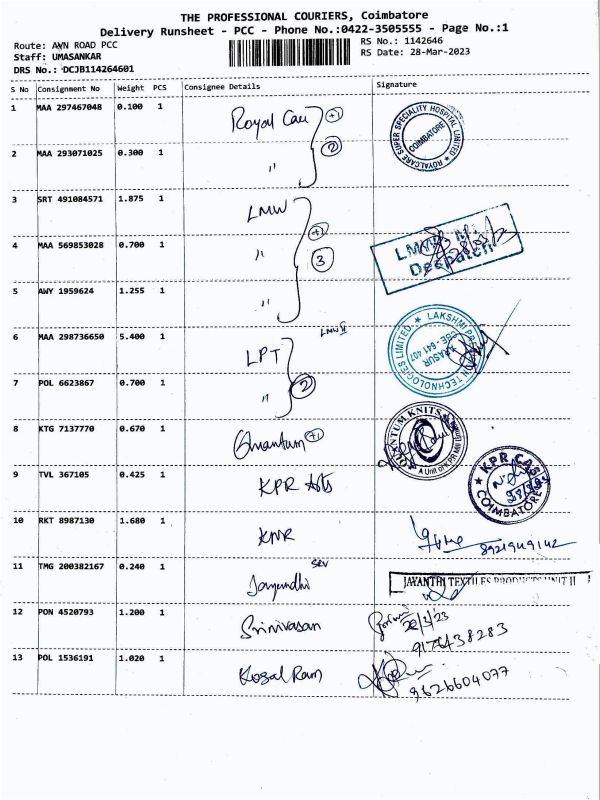 THE PROFESSIONAL COURIERS, Coimbatore
Delivery Runsheet - PCC - Phone No.:0422-3505555 - Page No.:1
Route: AVN ROAD PCC
RS No.: 1142646
Staff: UMASANKAR
RS Date: 28-Mar-2023
DRS No.: DCJB114264601
S No Consignment No Weight PCS Consignee Details Signature
1 MAA 297467048 0.100 1 Royal Care +1
ROYALCARE SUPER SPECIALITY HOSPITAL LIMITED COIMBATORE
2 MAA 293071025 0.300 1 " 2
3 SRT 491084571 1.875 1 LMW +1
4 MAA 569853028 0.700 1 " 3
Despatch
5 AWY 1959624 1.255 1 "
6 MAA 298736650 5.400 1 LPT LMW II
TECHNOLOGIES LIMITED ★ LAKSHMI
ARASUR CBE - 641 407
7 POL 6623867 0.700 1 " 2
8 KTG 7137770 0.670 1 Quantum +1
QUANTUM KNITS
A Unit of KPR Mill Limited
9 TVL 367105 0.425 1 KPR Arts
★ KPR CAS ★ COIMBATORE
10 RKT 8987130 1.680 1 KMR
8921949142
11 TMG 200382167 0.240 1 Jayundhi SRV
JAYANTHI TEXTILES PRODUCTS UNIT II
12 PON 4520793 1.200 1 Srinivasan
9176438283
13 POL 1536191 1.020 1 Kosal Ram
9626604077